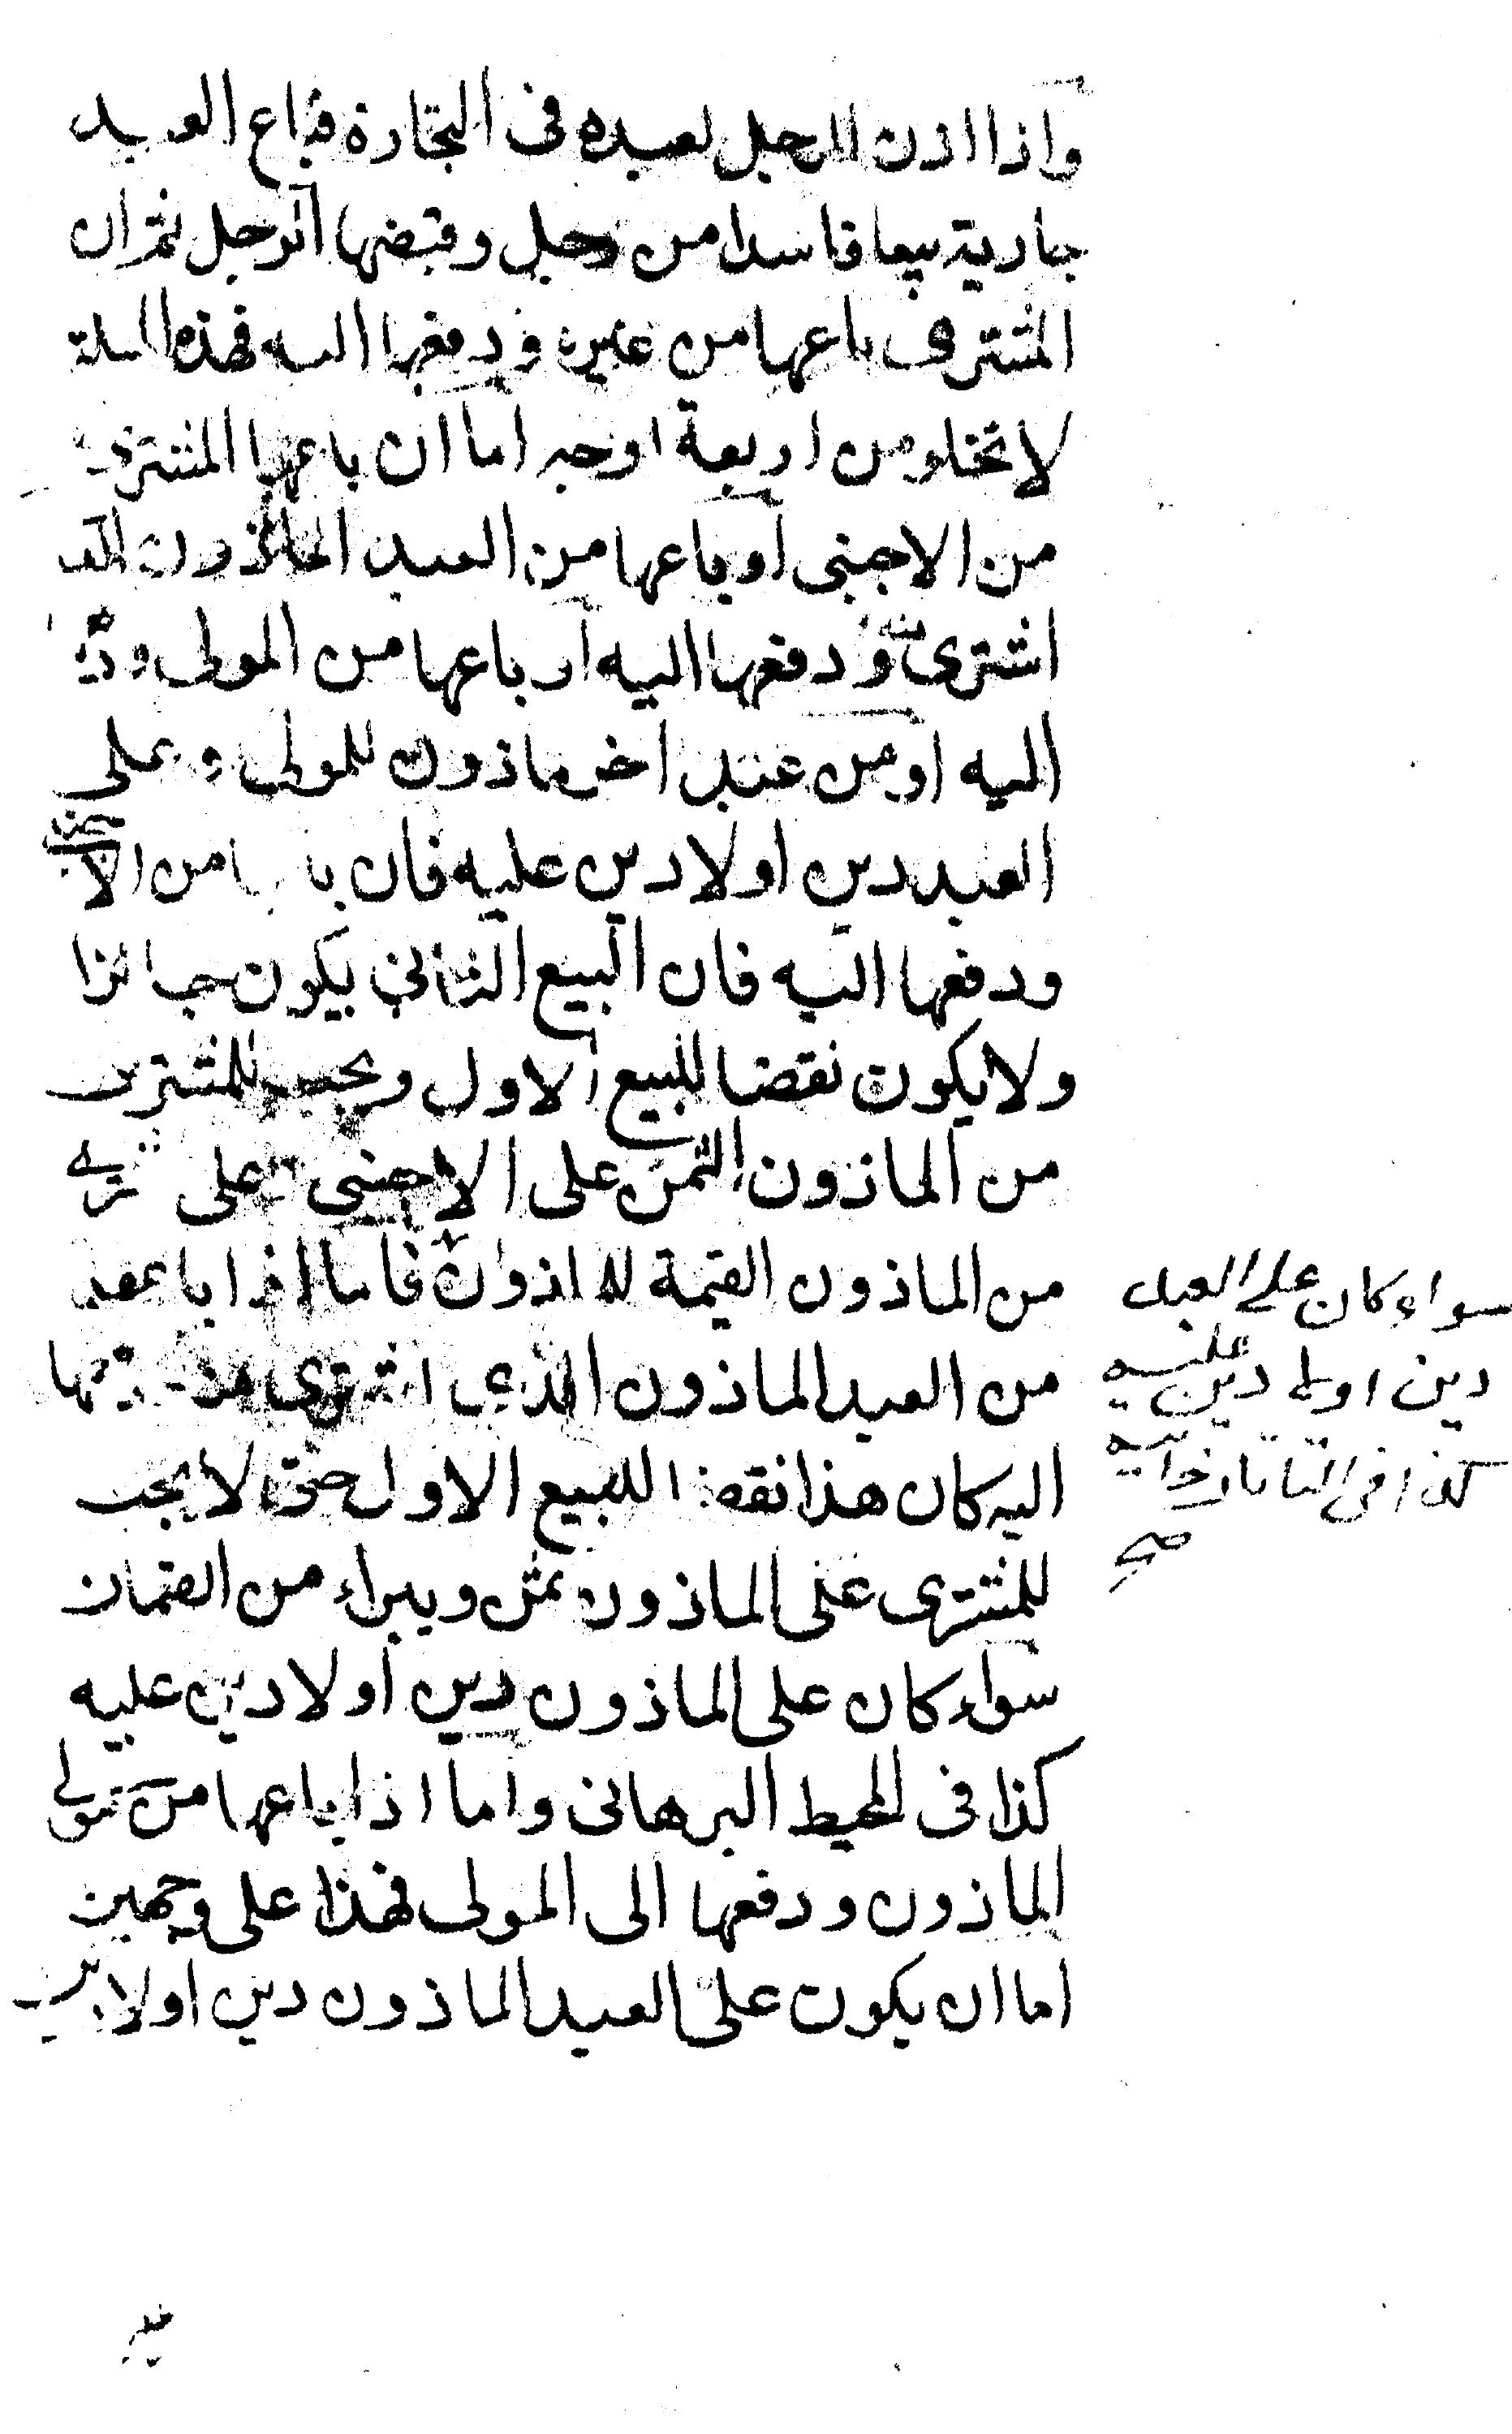 واذا اذن الرجل لعبده فى التجارة فباع العبد
جارية بيعا فاسدا من رجل وقبضها الرجل ثم ان
المشترى باعها من غيره ودفعها اليه فهذه المسلة
لا تخلو من اربعة اوجه اما ان باعها المشترى
من الاجنبى او باعها من العبد الماذون الذى
اشترى منه ودفعها اليه او باعها من المولى ودفعها
اليه او من عبد اخر ماذون للمولى وعلى
العبد دين او لا دين عليه فان باعها من الاجنبى
ودفعها اليه فان البيع الثانى يكون جائزا
ولا يكون نقضا للبيع الاول ويجب للمشترى
من الماذون الثمن على الاجنبى وعلى
من الماذون القيمة للماذون فاما اذا باعها
من العبد الماذون الذى اشترى منه
اليه كان هذا نقضا للبيع الاول حتى لا يجب
للمشترى على الماذون ثمن ويبراء من الضمان
سواء كان على الماذون دين او لا دين عليه
كذا فى المحيط البرهانى واما اذا باعها من مولى
الماذون ودفعها الى المولى فهذا على وجهين
اما ان يكون على العبد الماذون دين او لا
سواء كان على العبد
دين او لا دين عليه
كذا فى التاتارخانيه
صح